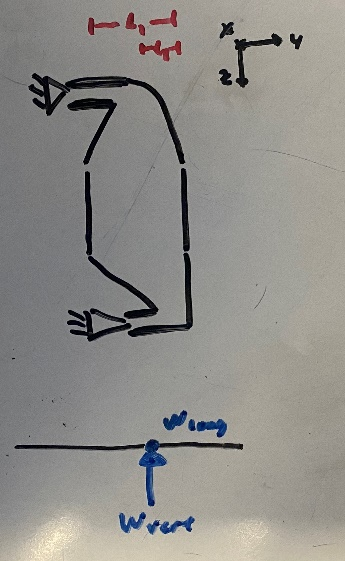 L₁
x
y
z
Wlong
Wvert